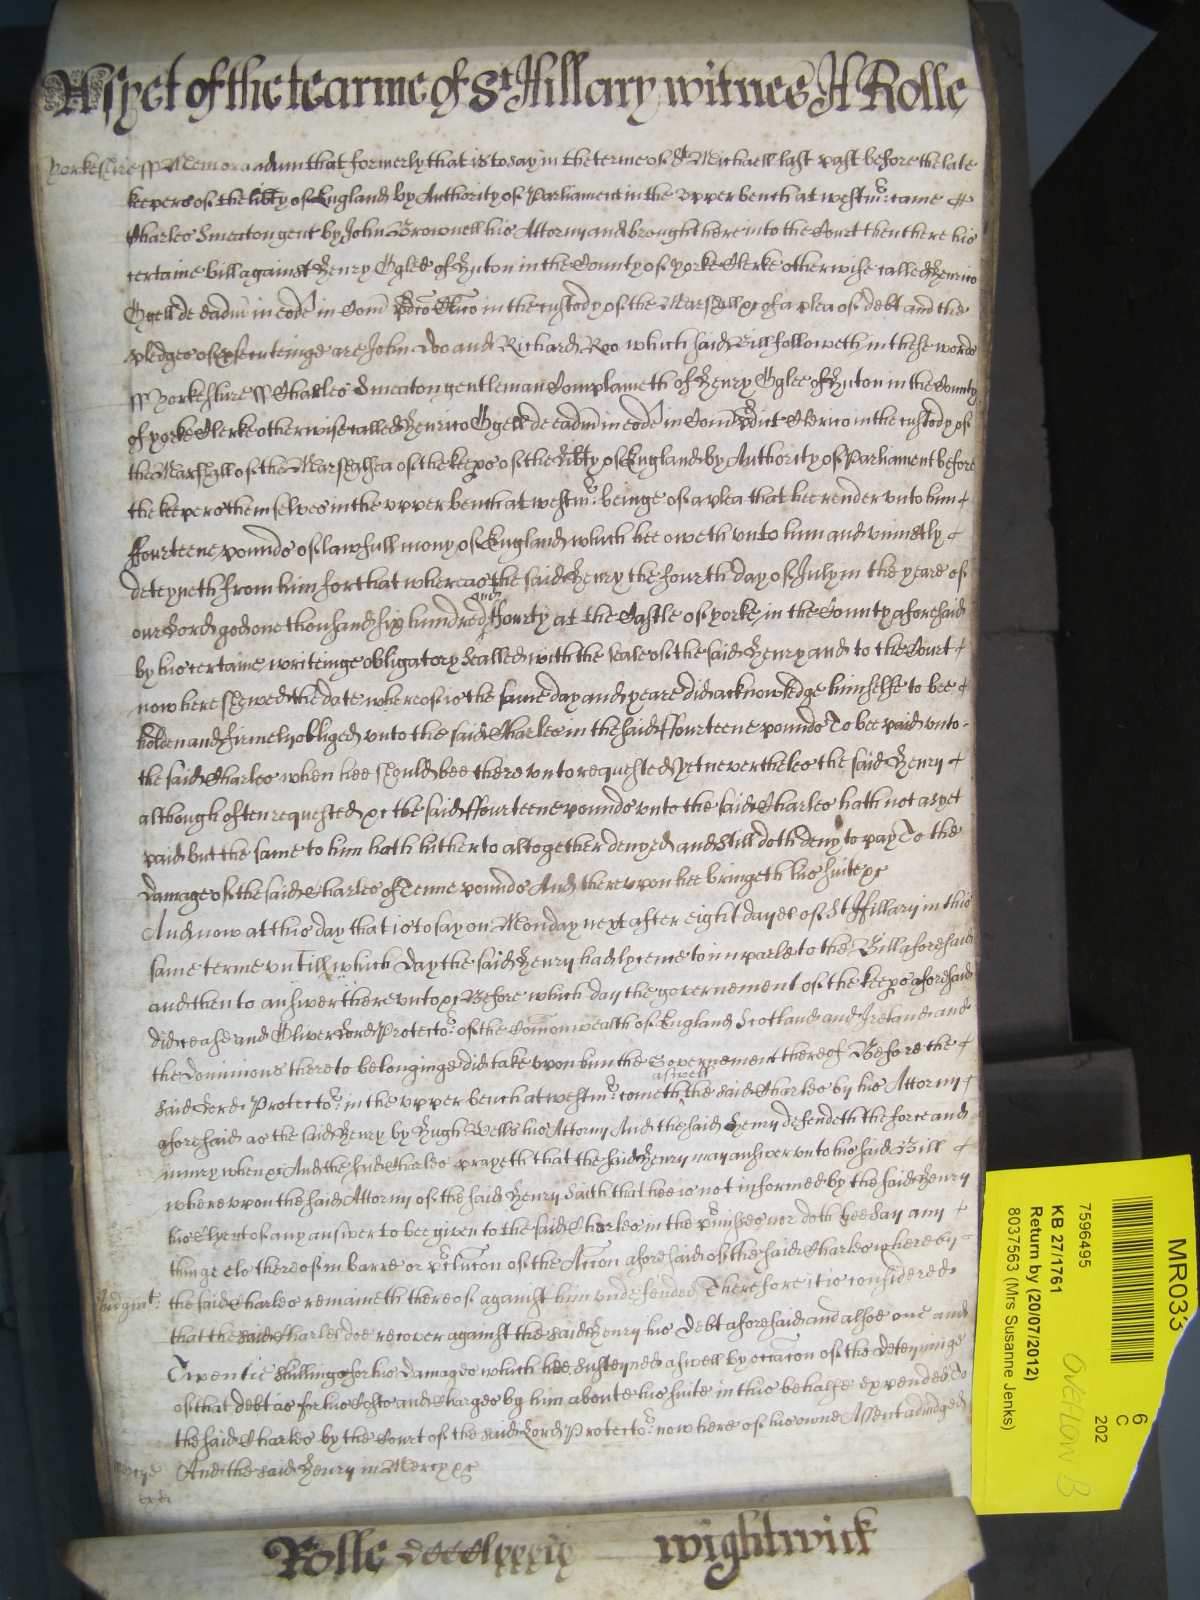 As yet of the tearme of St Hillary witnes H Rolle
Yorkeshire ss Memorandum that formerly that is to say in the terme of St Michaell last past before the late
keepers of the libty of England by Authority of Parliament in the upper bench at westmr: came
Charles Smeaton gent by John Brownell his Attorny and brought here into the Court then there his
certaine bill against Henry Ogles of Hinton in the County of yorke Clerke otherwise called Henrico
Ogell de eadm in cod in Com pdco Clico in the custody of the Marshall &c of a plea of debt and the
pledges of psecuteinge are John Doo and Richard Roo which said Bill followeth in these words
ss Yorkeshire ss Charles Smeaton gentleman Complaineth of Henry Ogles of Hinton in the County
of yorke Clerke otherwise called Henrico Ogell de eadm in cod in Com pdict Clerico in the custody of
the Marshall of the Marshalsea of the keeps of the Libty of England by Authority of Parliament before
the keepers themselves in the upper bench at westmr: beinge of a plea that hee render unto him
ffourteene pounds of lawfull mony of England which hee oweth unto him and uniustly
deteyneth from him for that whereas the said Henry the fourth day of July in the yeare of
our Lord god one thousand six hundred and ffourty at the Castle of yorke in the County aforesaid
by his certaine writeinge obligatory sealled with the seale of the said Henry and to the Court
now here shewed the date whereof is the same day and yeare did acknowledge himselfe to bee
holden and firmely obliged unto the said Charles in the said ffourteene pounds To bee paid unto
the said Charles when hee should bee thereunto requested yet neverthelesse the said Henry
although often requested &c the said ffourteene pounds unto the said Charles hath not as yet
paid but the same to him hath hitherto altogether denyed and still doth deny to pay To the
damage of the said Charles of Tenne pounds And thereupon hee bringeth his suite &c
And now at this day that is to say on Monday next after eight dayes of St Hillary in this
same terme untill which day the said Henry had lycence to imparle to the Bill aforesaid
and then to answer thereunto &c Before which day the governement of the keeps aforesaid
did cease and Oliver Lord Protector: of the Comonwealth of England Scotland and Ireland and
the dominions thereto belonginge did take upon him the Governement thereof Before the
said Lord Protector: in the upper bench at westmr: cometh aswell the said Charles by his Attorny
aforesaid as the said Henry by Hugh Wells his Attorny And the said Henry defendeth the force and
iniury when &c And the said Charles prayeth that the said Henry may answer unto his said Bill
whereupon the said Attorny of the said Henry saith that hee is not informed by the said Henry
his Clyent of any answer to bee given to the said Charles in the pmisses nor doth hee say any
thinge els thereof in barre or pclucon of the Accon aforesaid of the said Charles whereby
Judgmt: the said Charles remaineth thereof against him undefended Therefore it is considered
that the said Charles doe recover against the said Henry his debt aforesaid and alsoe one and
Twentie shillings for his damages which hee susteyned aswell by occacon of the deteyninge
of that debt as for his Costs and Charges by him aboute his suite in this behalfe expended to
the said Charles by the Court of the said Lord Protector: now here of his owne Assent adiudged
Mercye And the said Henry in Mercy &c
Rolle wightwick
MR033
6
C
202
7596495
KB 27/1761
Return by (20/07/2012)
8037563 (Mrs Susanne Jenks)
OVERFLOW B